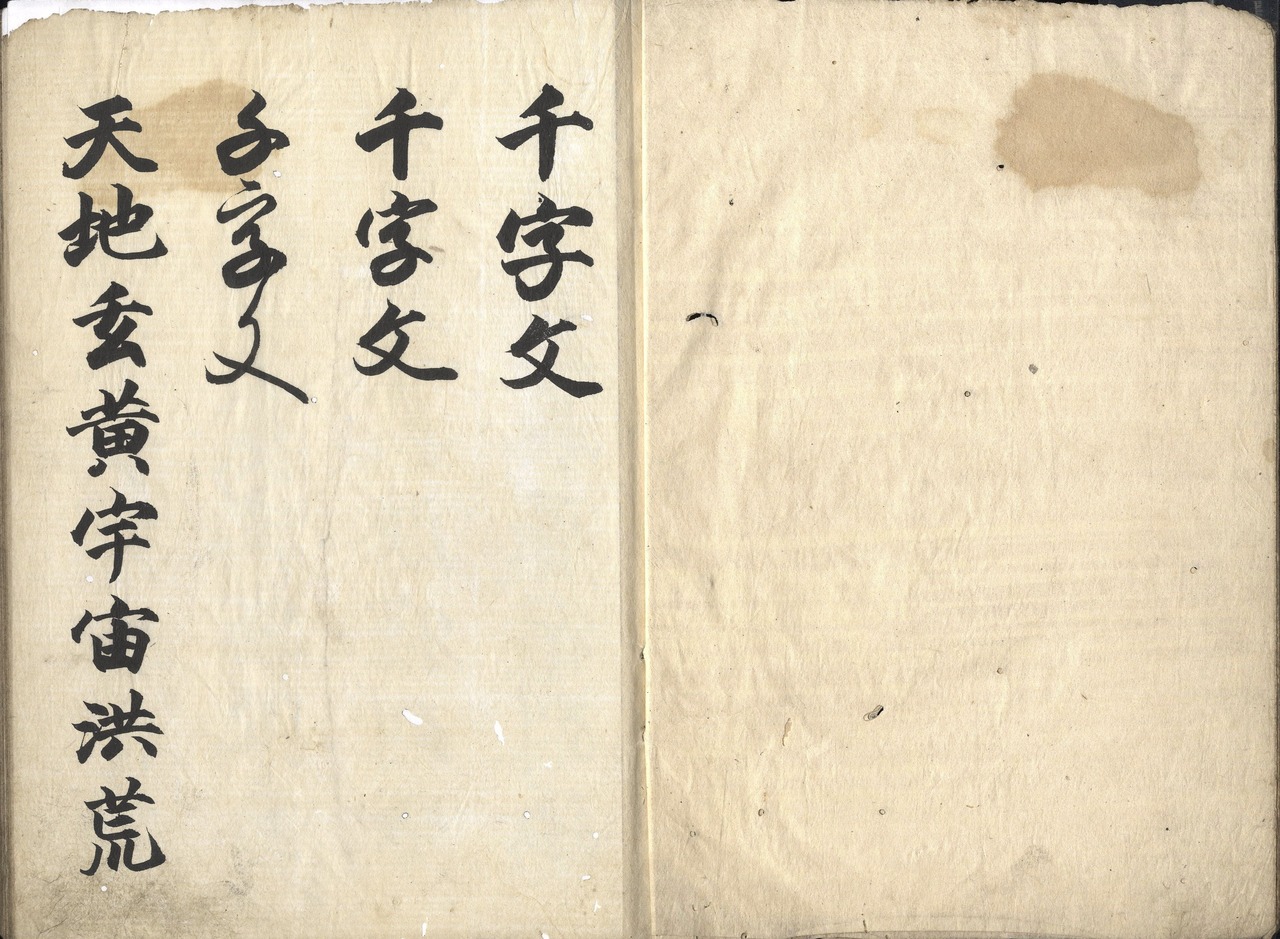 千字文
千字文
千字文
天地玄黄宇宙洪荒